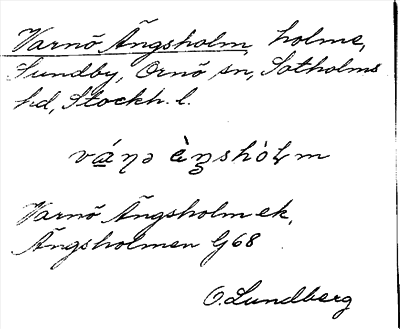 Varnö Ängsholm, holme,
Sundby, Ornö sn, Sotholms
hd, Stockh. l.
Varnö Ängsholm ek.
Ängsholmen G68
O. Lundberg